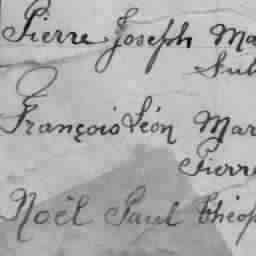 Pierre Joseph Ma
Sub
François Léon Mar
Pierre
Noël Paul Théop